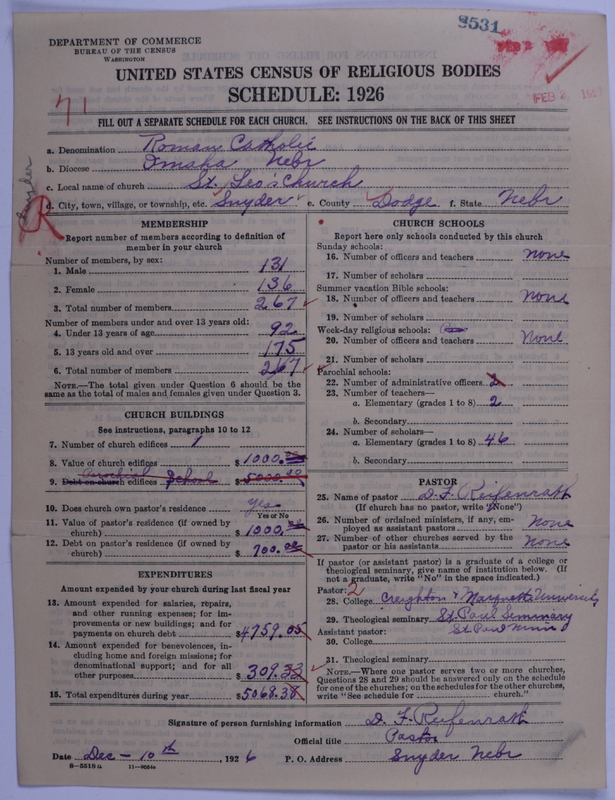 8531
DEPARTMENT OF COMMERCE
BUREAU OF THE CENSUS
WASHINGTON
FEB 2
FEB 2
UNITED STATES CENSUS OF RELIGIOUS BODIES
SCHEDULE: 1926
71
FILL OUT A SEPARATE SCHEDULE FOR EACH CHURCH. SEE INSTRUCTIONS ON THE BACK OF THIS SHEET
Snyder
a. Denomination Roman Catholic
b. Diocese Omaha Nebr
c. Local name of church St. Leo's Church
d. City, town, village, or township, etc. Snyder e. County Dodge f. State Nebr
MEMBERSHIP
Report number of members according to definition of
member in your church
Number of members, by sex:
1. Male 131
2. Female 136
3. Total number of members 267
Number of members under and over 13 years old:
4. Under 13 years of age 92
5. 13 years old and over 175
6. Total number of members 267
NOTE.—The total given under Question 6 should be the
same as the total of males and females given under Question 3.
CHURCH BUILDINGS
See instructions, paragraphs 10 to 12
7. Number of church edifices 1
8. Value of church edifices $1000.
Parochial
9. Debt on church edifices School $5000.00
10. Does church own pastor's residence Yes
Yes or No
11. Value of pastor's residence (if owned by
church) $1000.
12. Debt on pastor's residence (if owned by
church) $700.00
EXPENDITURES
Amount expended by your church during last fiscal year
13. Amount expended for salaries, repairs,
and other running expenses; for im-
provements or new buildings; and for
payments on church debt $4759.05
14. Amount expended for benevolences, in-
cluding home and foreign missions; for
denominational support; and for all
other purposes $309.33
15. Total expenditures during year $5068.38
CHURCH SCHOOLS
Report here only schools conducted by this church
Sunday schools:
16. Number of officers and teachers None
17. Number of scholars
Summer vacation Bible schools:
18. Number of officers and teachers None
19. Number of scholars
Week-day religious schools:
20. Number of officers and teachers None
21. Number of scholars
Parochial schools:
22. Number of administrative officers 2
23. Number of teachers—
a. Elementary (grades 1 to 8) 2
b. Secondary
24. Number of scholars—
a. Elementary (grades 1 to 8) 46
b. Secondary
PASTOR
25. Name of pastor D. F. Reifenrath
(If church has no pastor, write "None")
26. Number of ordained ministers, if any, em-
ployed as assistant pastors None
27. Number of other churches served by the
pastor or his assistants None
If pastor (or assistant pastor) is a graduate of a college or
theological seminary, give name of institution below. (If
not a graduate, write "No" in the space indicated.)
Pastor: 2
28. College Creighton & Marquette University
29. Theological seminary St. Paul Seminary
Assistant pastor: St Paul Minn
30. College
31. Theological seminary
NOTE.—Where one pastor serves two or more churches,
Questions 28 and 29 should be answered only on the schedule
for one of the churches; on the schedules for the other churches,
write "See schedule for church."
Signature of person furnishing information D. F. Reifenrath
Official title Pastor
Date Dec - 10th, 1926 P. O. Address Snyder Nebr
8—5518a 11—9054a